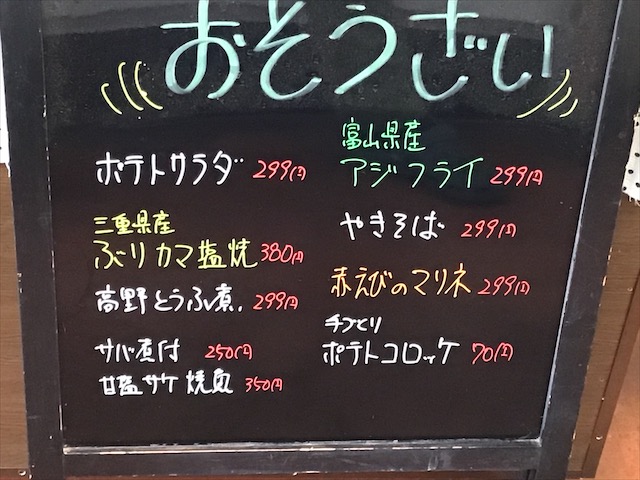 おそうざい
ポテトサラダ 299円
三重県産
ぶりカマ塩焼 380円
高野とうふ煮. 299円
サバ煮付 250円
甘塩サケ焼魚 350円
富山県産
アジフライ 299円
やきそば 299円
赤えびのマリネ 299円
手づくり
ポテトコロッケ 70円